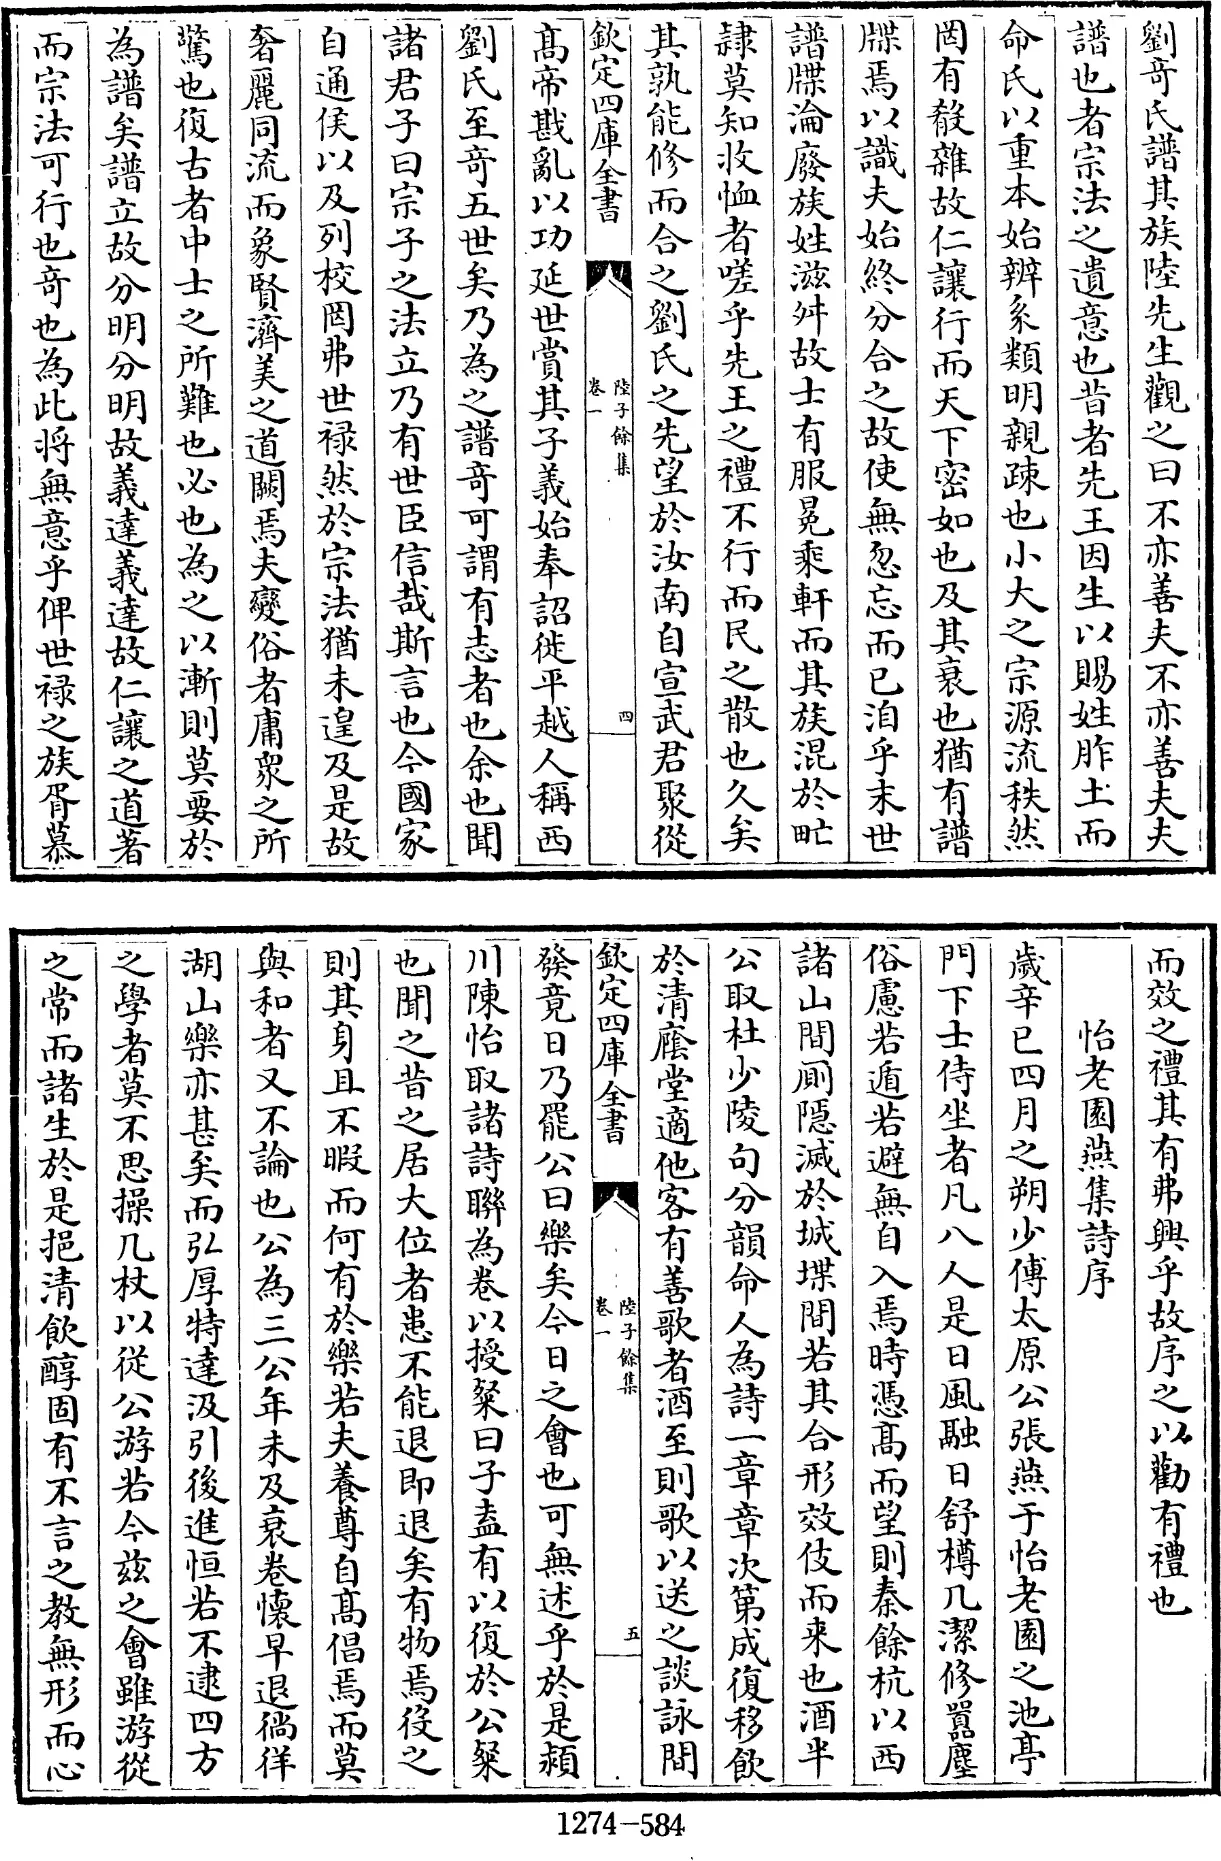 劉竒氏譜其族陸先生觀之曰不亦善夫不亦善夫夫
譜也者宗法之遺意也昔者先王因生以賜姓胙土而
命氏以重本始辨系類明親疎也小大之宗源流秩然
罔有殽雜故仁讓行而天下密如也及其衰也猶有譜
牒焉以識夫始終分合之故使無忽忘而已洎乎末世
譜牒淪廢族姓滋舛故士有服冕乘軒而其族混於甿
隷莫知收恤者嗟乎先王之禮不行而民之散也久矣
其孰能修而合之劉氏之先望於汝南自宣武君聚從
欽定四庫全書
陸子餘集
卷一
四
髙帝戡亂以功延世賞其子義始奉詔徙平越人稱西
劉氏至竒五世矣乃為之譜竒可謂有志者也余也聞
諸君子曰宗子之法立乃有世臣信哉斯言也今國家
自通侯以及列校罔弗世禄然於宗法猶未遑及是故
奢麗同流而象賢濟美之道闕焉夫變俗者庸衆之所
驚也復古者中士之所難也必也為之以漸則莫要於
為譜矣譜立故分明分明故義達義達故仁讓之道著
而宗法可行也竒也為此将無意乎俾世禄之族胥慕
而效之禮其有弗興乎故序之以勸有禮也
怡老園燕集詩序
歲辛巳四月之朔少傅太原公張燕于怡老園之池亭
門下士侍坐者凡八人是日風融日舒樽几潔修囂塵
俗慮若遁若避無自入焉時憑髙而望則秦餘杭以西
諸山間厠隱滅於城堞間若其合形效伎而来也酒半
公取杜少陵句分韻命人為詩一章章次第成復移飲
於清䕃堂適他客有善歌者酒至則歌以送之談詠間
欽定四庫全書
陸子餘集
卷一
五
發竟日乃罷公曰樂矣今日之會也可無述乎於是頴
川陳怡取諸詩聯為卷以授粲曰子盍有以復於公粲
也聞之昔之居大位者患不能退即退矣有物焉役之
則其身且不暇而何有於樂若夫養尊自髙倡焉而莫
與和者又不論也公為三公年未及衰卷懷早退徜徉
湖山樂亦甚矣而弘厚特達汲引後進恒若不逮四方
之學者莫不思操几杖以從公游若今兹之會雖游從
之常而諸生於是挹清飲醇固有不言之教無形而心
1274-584